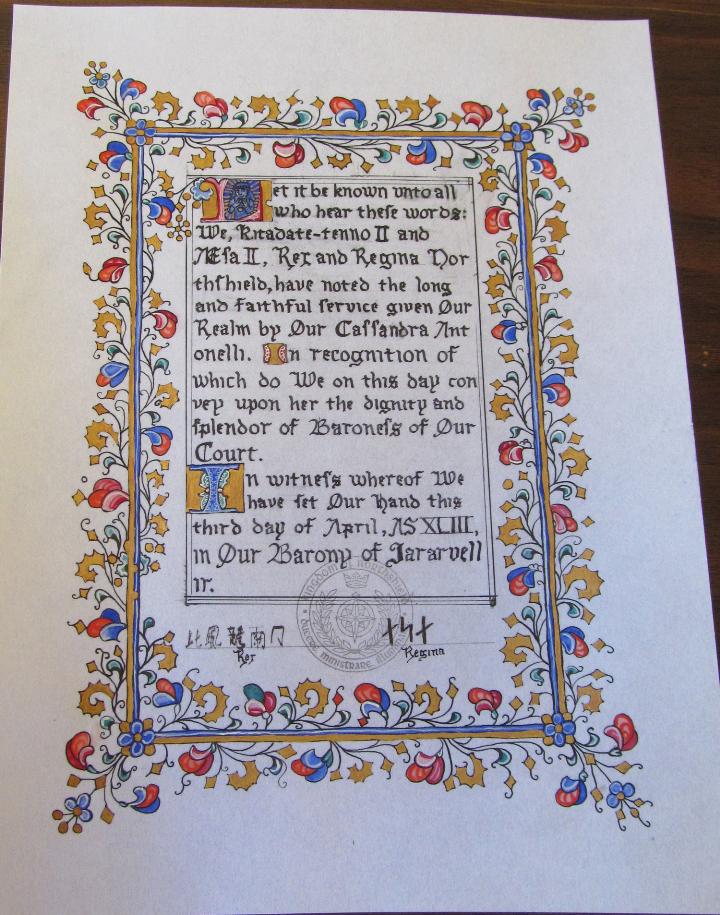 Let it be known unto all
who hear theſe words:
We, Kitadate-tenno II and
Æſa II, Rex and Regina Nor
thſhield, have noted the long
and faithful ſervice given Our
Realm by Our Caſſandra Ant
onelli. In recognition of
which do We on this day con
vey upon her the dignity and
ſplendor of Baroneſs of Our
Court.
In witneſs whereof We
have ſet Our Hand this
third day of April, AS XLIII,
in Our Barony of Jararvell
ir.
Kingdom of Northshield
Ducere Ministrare
Rex
Regina